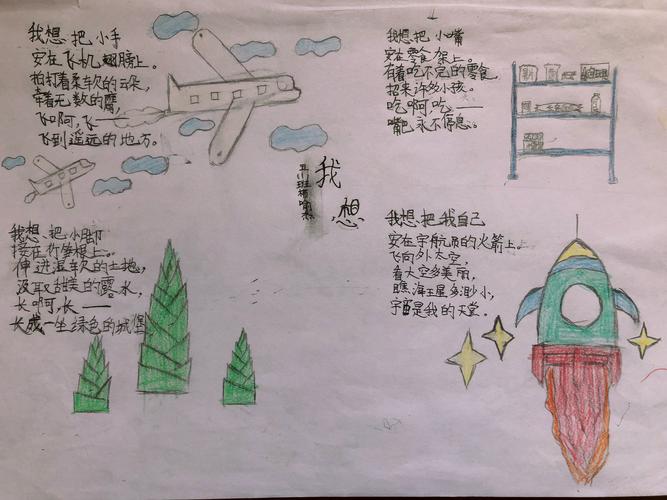 我想把小手
安在飞机翅膀上。
拍打着柔软的云朵,
牵着无数的鹰,
飞啊,飞——
飞到遥远的地方。
我想把小嘴
安在零食架上。
有着吃不完的零食,
招来许多小孩。
吃啊,吃——
嘴巴永不停息。
我想
我想把小脚
接在竹笋根上。
伸进湿软的土地,
汲取甜美的露水,
长啊,长——
长成一坐绿色的城堡
我想把我自己
安在宇航员的火箭上。
飞向外太空,
看太空多美丽,
瞧海王星多渺小,
宇宙是我的天堂。